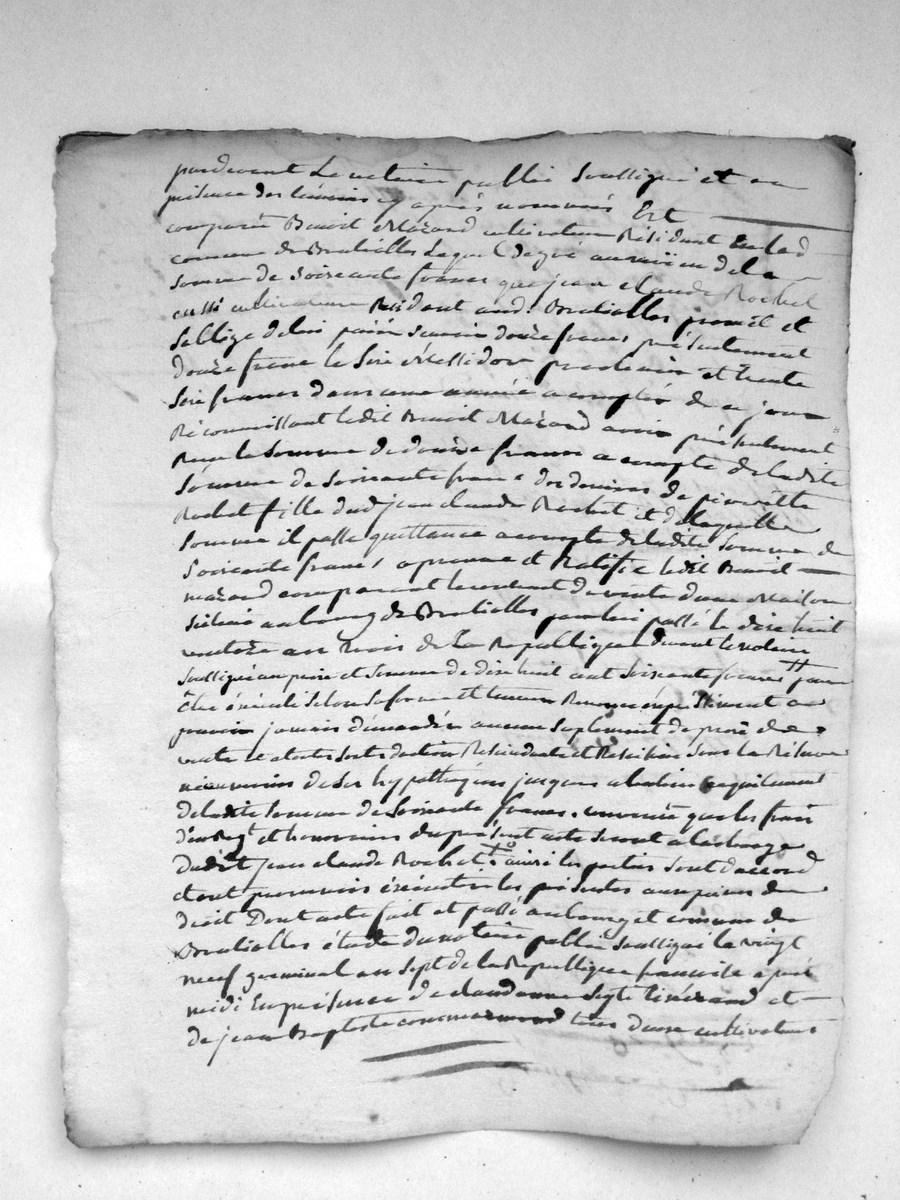 pardevant Le notaire public Soussigné et en
présence des témoins cy après nommés Est
comparû Benoit Mazard cultivateur Résidant En lad
comune de Brulioles Lequel De gré au moïen de la
somme de Soixante francs que jean claude Rochet
aussi cultivateur Résidant aud. Brulioles promet et
Soblige de lui païer Scavoir douze francs présentement
douze franc le Six Messidor prochain et trente
Six francs dans une année a compter de ce jour
Réconnoissant ledit Benoit Mazard avoir présentement
Reçu la Somme de douze francs a compte de ladite
Somme de Soixante francs des deniers de pierrette
Rochet fille dud jean claude Rochet et de laquelle
Somme il passe quittance a compte de ladite Somme de
Soixante francs, aprouve et Ratifie ledit Benoit
mazard comparant le contrat de vente dune Maison
Située au bourg de Brulioles par lui passé le dix huit
ventose an trois de la Republique Devant le notaire
Soussigné au prix et Somme de dix huit cent soixante francs pour
être éxécuté Selon Sa forme et teneur Renonce expréssément a
pouvoir jamais démander aucun Suplement de prix de
vente et a toutes Sortes daction Rescindante et Rescisoire Sous la Réserve
néanmoins de Ses hypothèques jusques a lentier acquitement
de ladite Somme de Soixante francs. convenu que les frais
d'enRegt et honoraires du présent acte Seront a la charge
Dudit jean claude Rochet. ainsi les parties Sont daccord
et ont promis éxécuter les présentes aux peines de
droit Dont acte fait et passé au bourg et comune de
Brulioles étude du notaire public Soussigné le vingt
neuf germinal an Sept de la Republique francoise après
midi En présence de claude et
de jean Baptiste tous deux cultivateurs